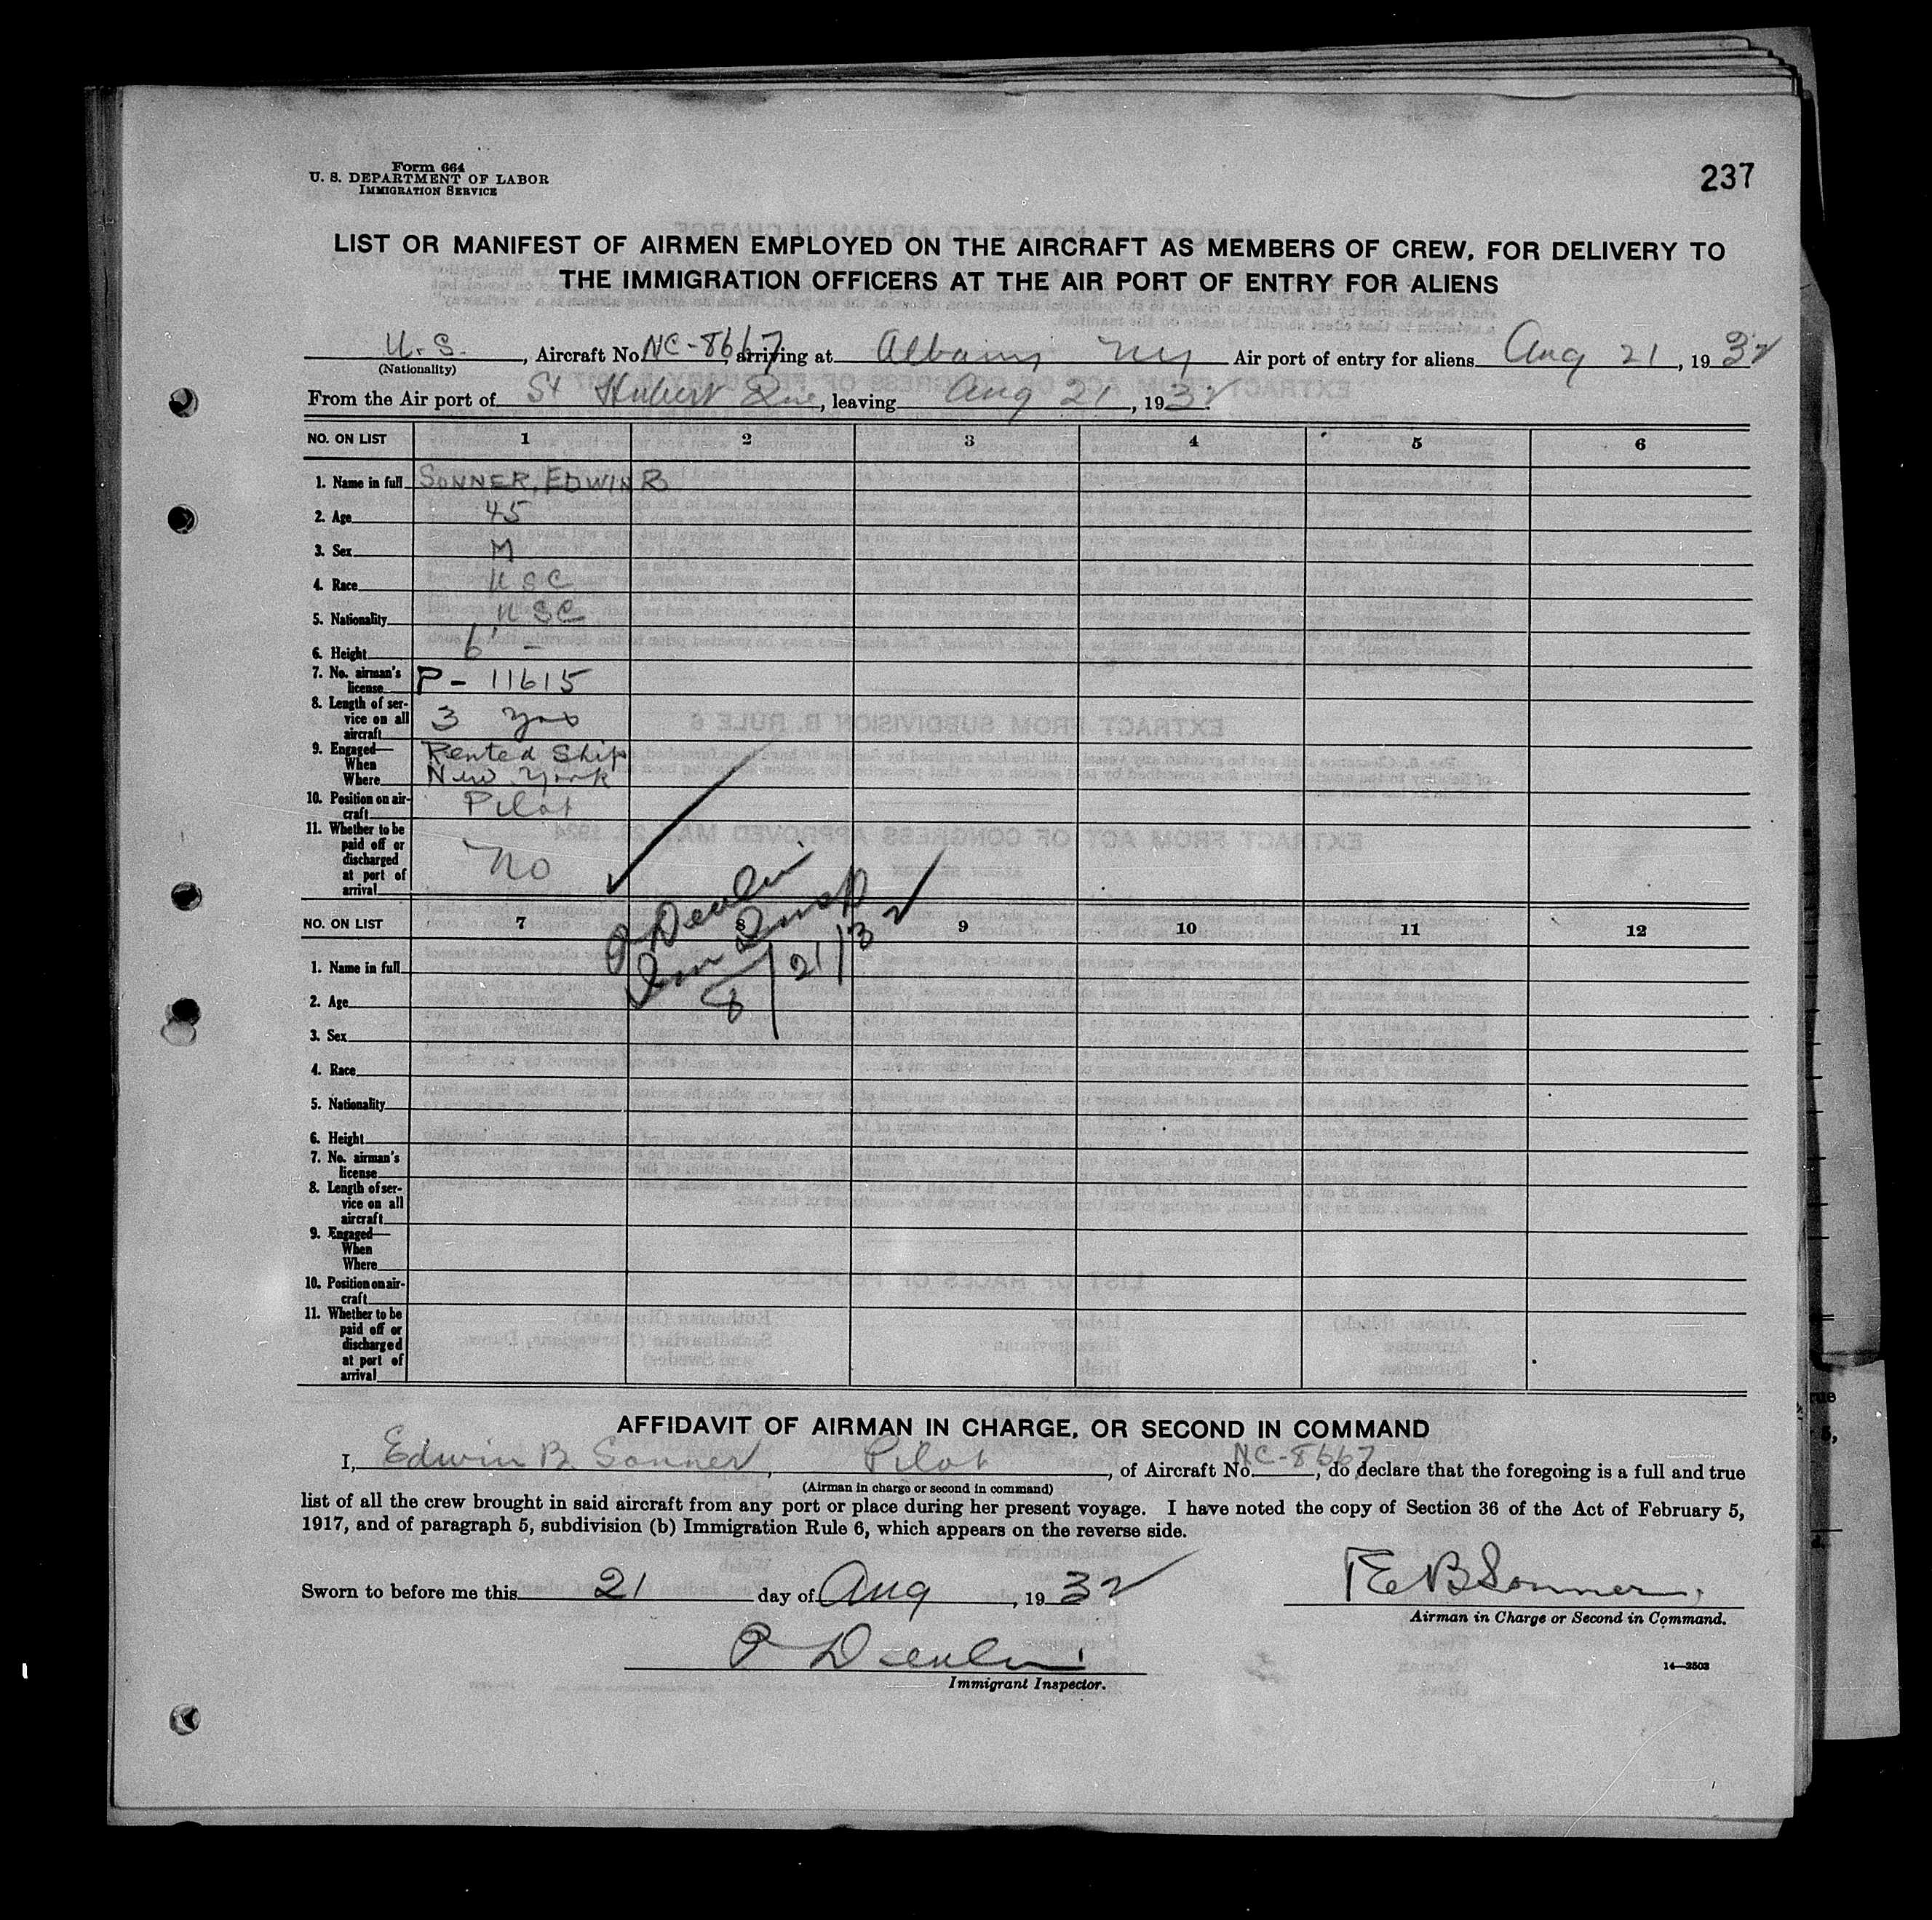 Form 664
U. S. DEPARTMENT OF LABOR
IMMIGRATION SERVICE
237
LIST OR MANIFEST OF AIRMEN EMPLOYED ON THE AIRCRAFT AS MEMBERS OF CREW, FOR DELIVERY TO
THE IMMIGRATION OFFICERS AT THE AIR PORT OF ENTRY FOR ALIENS
U.S. , Aircraft No. NC-8667, arriving at Albany NY Air port of entry for aliens Aug 21, 1932
(Nationality)
From the Air port of St Hubert Que, leaving Aug 21, 1932.
NO. ON LIST 1 2 3 4 5 6
1. Name in full SONNER, EDWIN B
2. Age 45
3. Sex M
4. Race USC
5. Nationality USC
6. Height 6' -
7. No. airman's
license P - 11615
8. Length of ser-
vice on all
aircraft 3 yrs
9. Engaged— Rented Ship
When
Where New York
10. Position on air-
craft Pilot
11. Whether to be
paid off or
discharged
at port of
arrival No
P Devlin
Imm Insp
8/21/32
NO. ON LIST 7 8 9 10 11 12
1. Name in full
2. Age
3. Sex
4. Race
5. Nationality
6. Height
7. No. airman's
license
8. Length of ser-
vice on all
aircraft
9. Engaged—
When
Where
10. Position on air-
craft
11. Whether to be
paid off or
discharged
at port of
arrival
AFFIDAVIT OF AIRMAN IN CHARGE, OR SECOND IN COMMAND
I, Edwin B. Sonner, Pilot, of Aircraft No. NC-8667, do declare that the foregoing is a full and true
(Airman in charge or second in command)
list of all the crew brought in said aircraft from any port or place during her present voyage. I have noted the copy of Section 36 of the Act of February 5,
1917, and of paragraph 5, subdivision (b) Immigration Rule 6, which appears on the reverse side.
Sworn to before me this 21 day of Aug, 1932
E B Sonner
Airman in Charge or Second in Command.
P Devlin
Immigrant Inspector.
14—2503